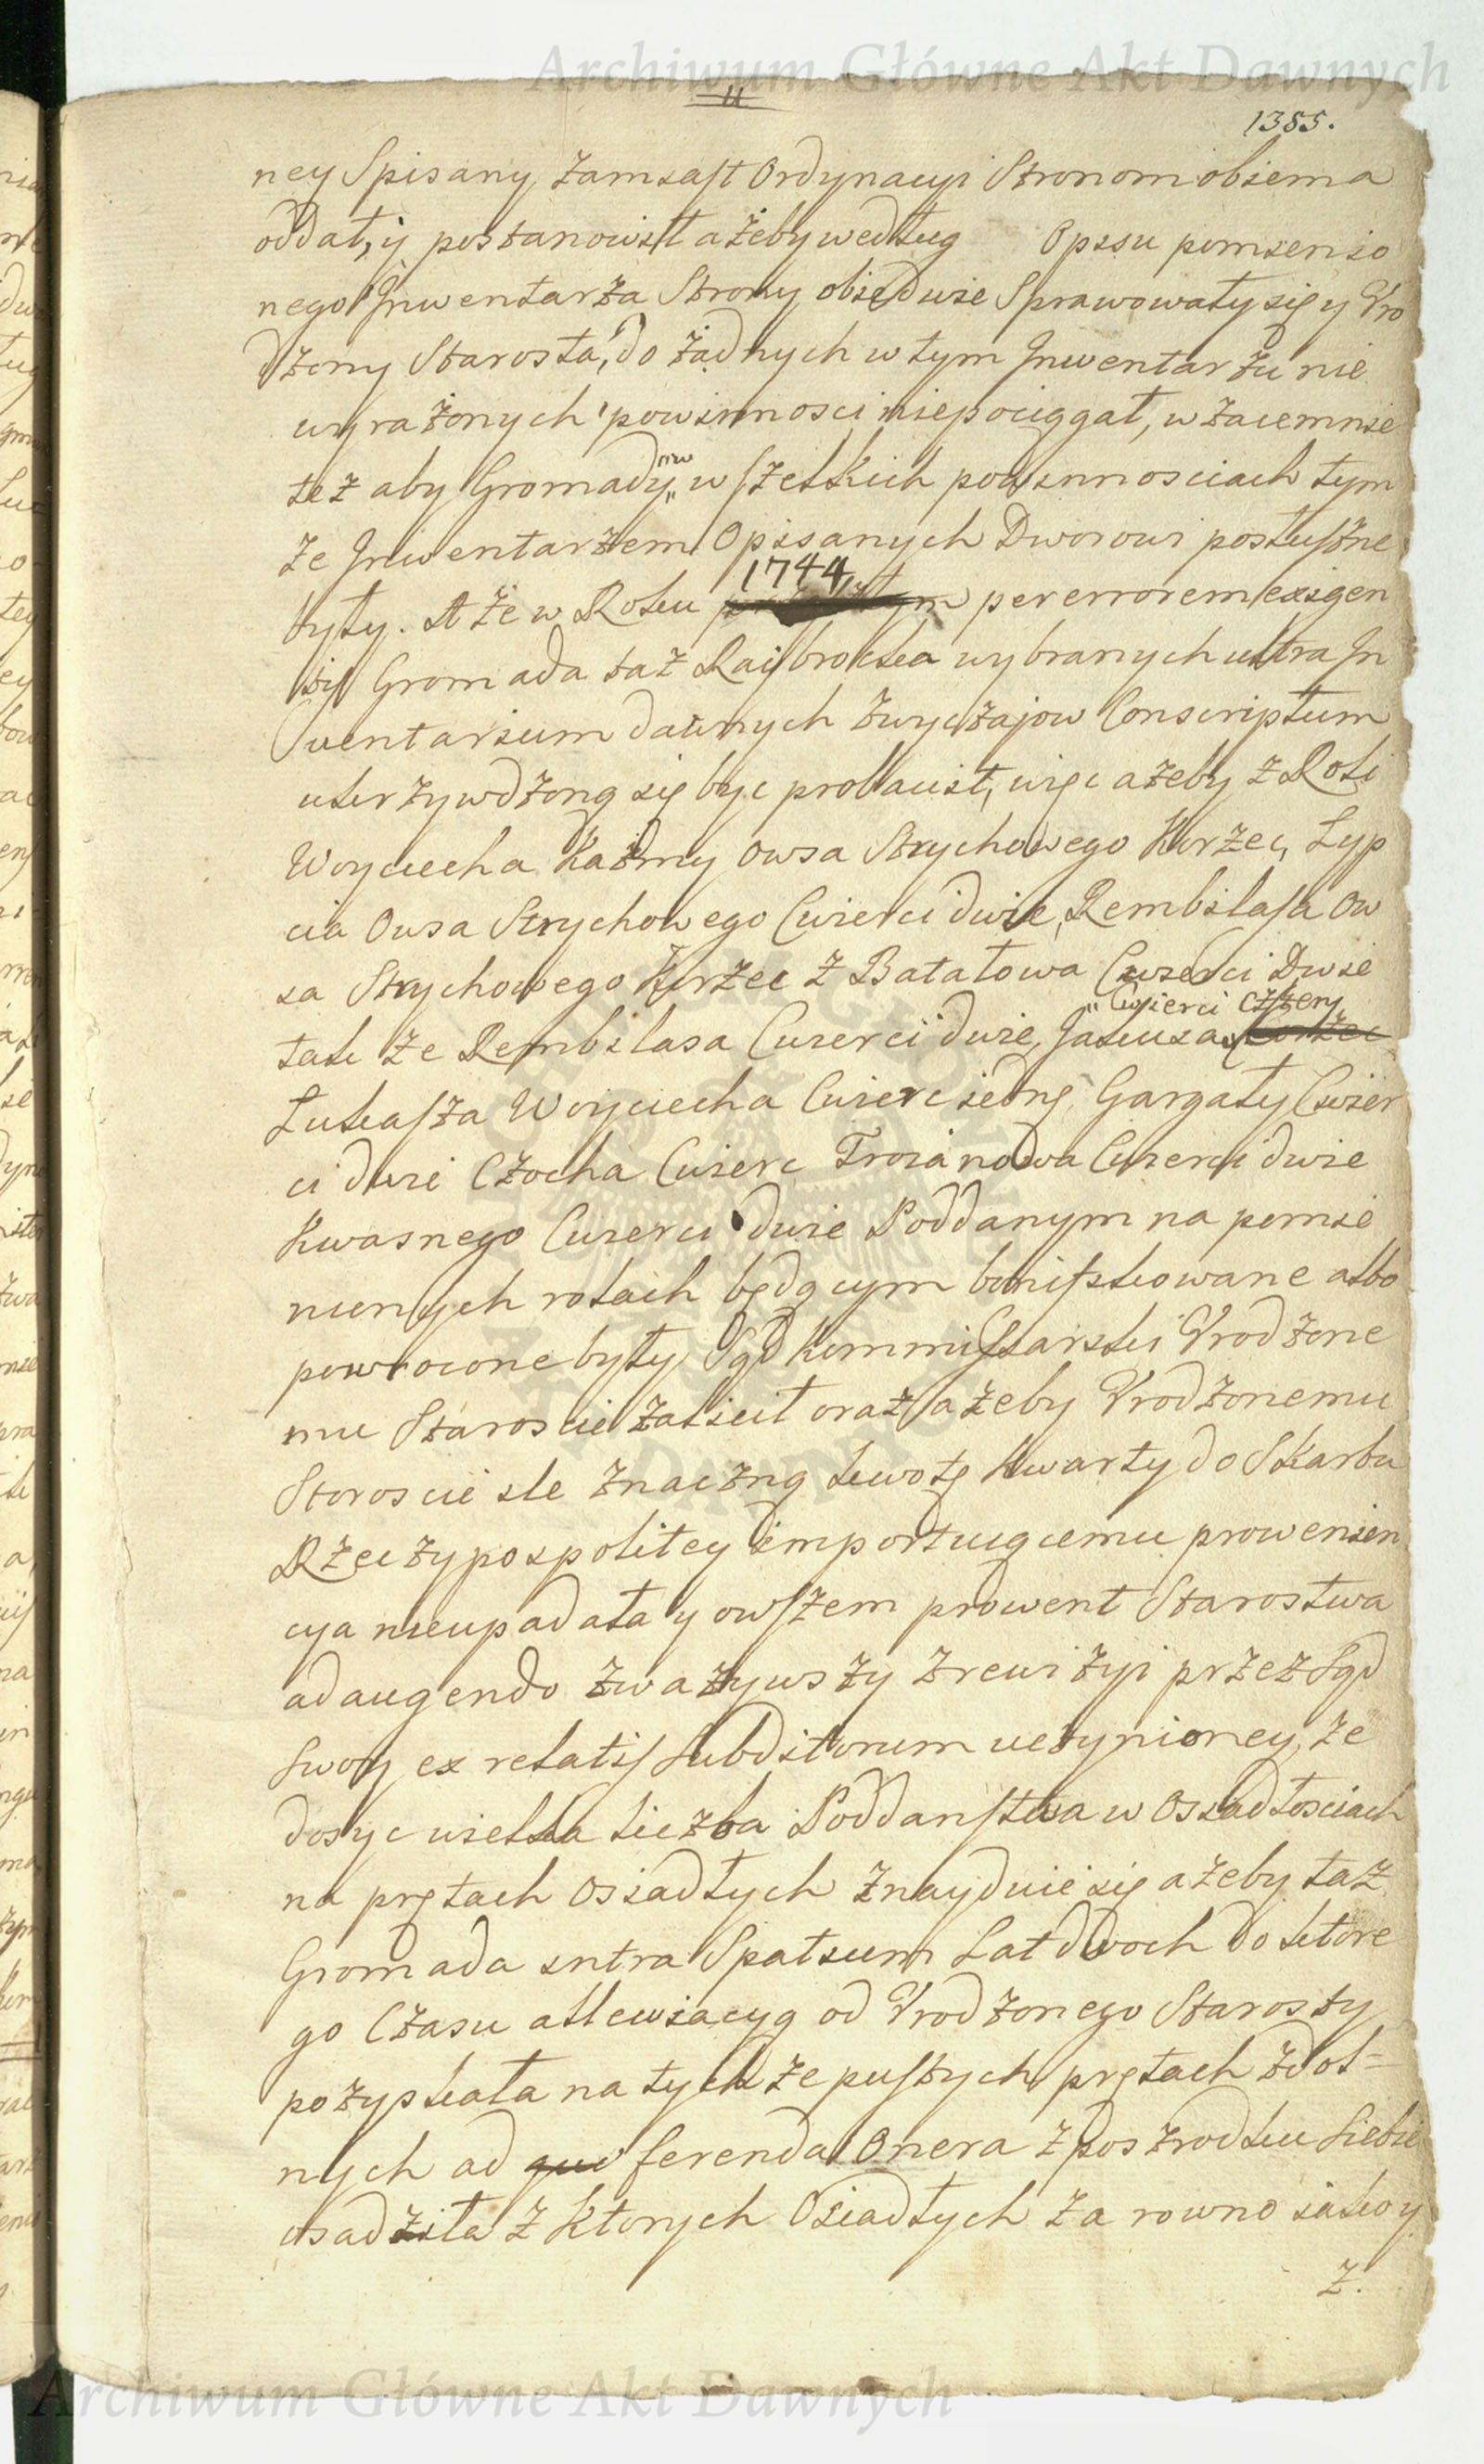 Archiwum Główne Akt Dawnych
1385.
ney Spisany, zamiast Ordynacyi Stronom obiema
oddał, y postanowił ażeby według Opisu pomienio
nego Inwentarza Strony obiedwie Sprawowały się y Vro
dzony Starosta, do żadnych w tym Inwentarzu nie
wyrażonych powinnosci niepociągał, wzaiemnie
też aby Gromady, we wszelkich powinnosciach tym
że Inwentarzem Opisanych Dworowi posłuszne
były. A że w Roku 1744, per errorem exigen
tis Gromada taż Raybrocka wybranych ultra In
ventarium dawnych zwyczajow Conscriptum
ukrzywdzoną się byc probacit, więc ażeby z Roli
Woyciecha Kaźmy Owsa Strychowego Korzec, Łyp
cia Owsa Strychowego Cwierci dwie, Rembilasa Ow
sa Strychowego Korzec z Batałowa Cwierci Dwie
także Rembilasa Cwierci dwie, Jakusa Cwierci Cztery
Łukasza Woyciecha Cwierc iedng, Gargaty Cwier
ci dwie Czocha Cwierc Troianowa Cwierci dwie
Kwasnego Cwierci dwie Poddanym na pomie
nionych rolach będącym bonifikowane albo
powrocone były, Sąd Kommissarski Vrodzone
mu Staroscie zalecił oraz ażeby Vrodzonemu
Staroscie ile znaczną kwotę kwarty do Skarbu
Rzeczypospolitey importuiącemu prowenien
cya nieupadała y owszem prowent Starostwa
adaugendo zważywszy z rewizyi przez Sąd
swoy ex relatis Subditorum uczynioney, że
dosyc wielka liczba Poddanstwa w Osiadłosciach
na prętach osiadłych znayduie się ażeby taż
Gromada intra Spatium Lat dwoch do ktore
go Czasu allewiacyą od Vrodzonego Starosty
pozyskała na tychże pustych prętach zdol=
nych ad ferenda Onera z posrodku siebie
osadziła z ktorych Osiadłych za rowno iako y
z.
Archiwum Główne Akt Dawnych